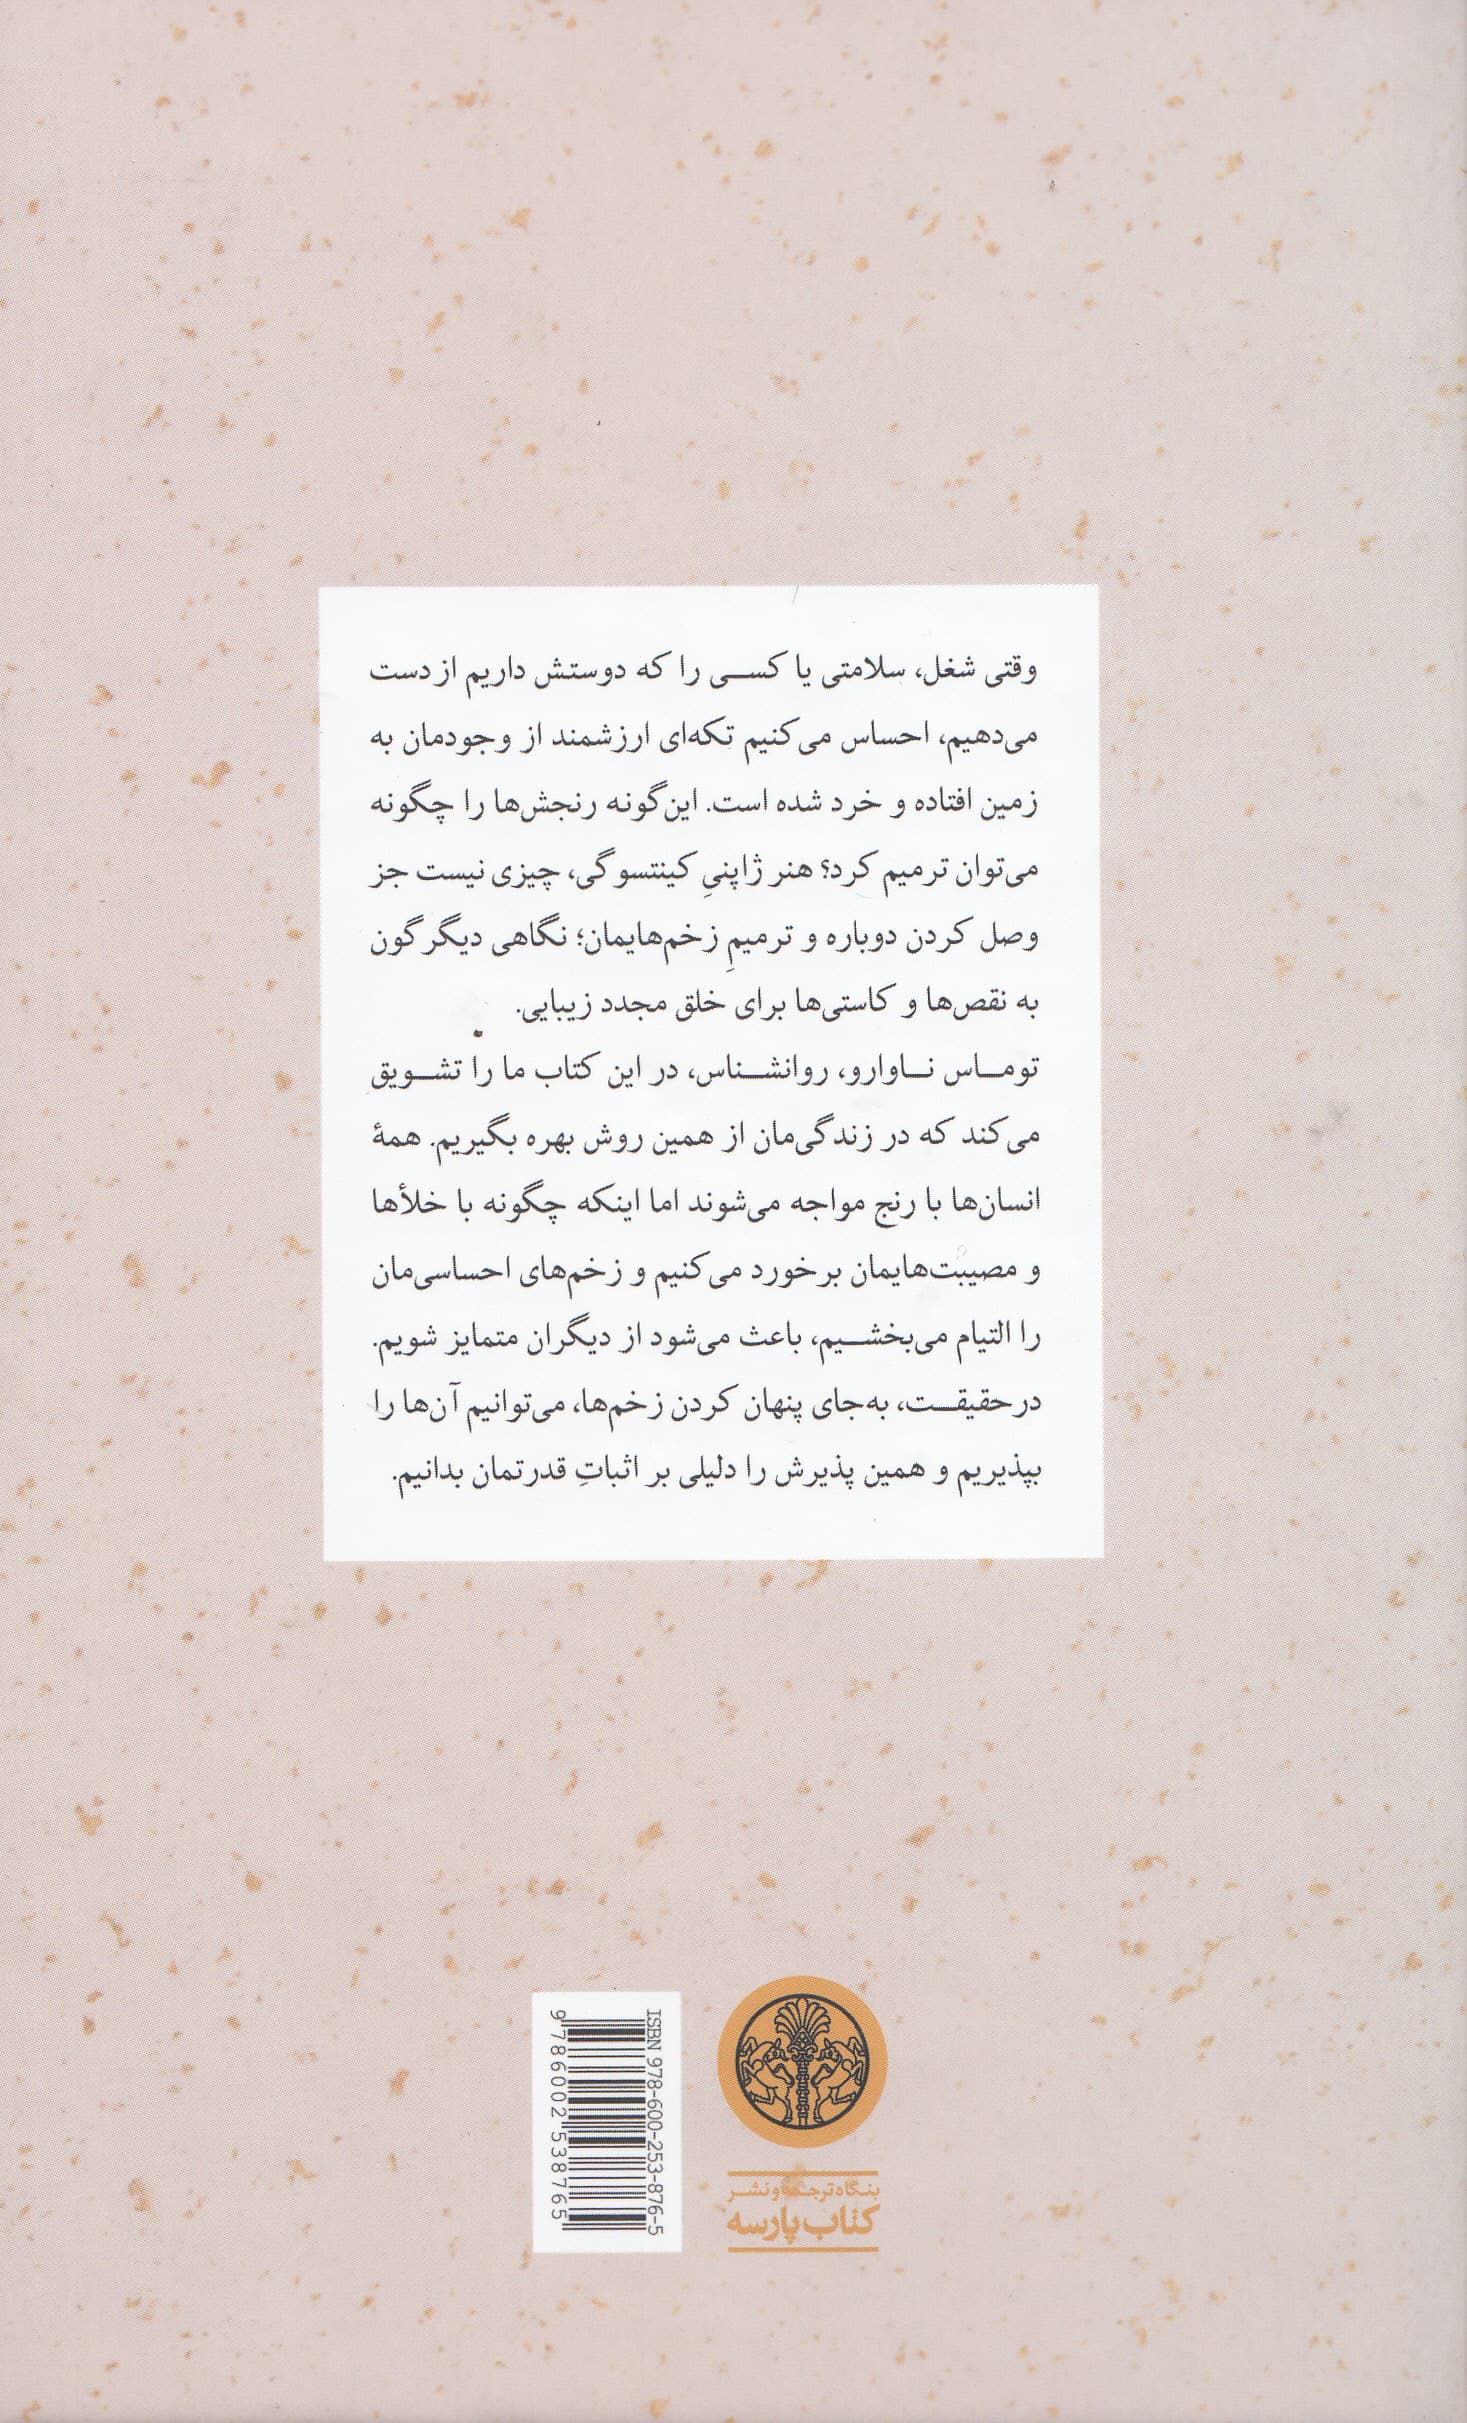 وقتی شغل، سلامتی یا کسی را که دوستش داریم از دست
می‌دهیم، احساس می‌کنیم تکه‌ای ارزشمند از وجودمان به
زمین افتاده و خرد شده است. این‌گونه رنجش‌ها را چگونه
می‌توان ترمیم کرد؟ هنر ژاپنیِ کینتسوگی، چیزی نیست جز
وصل کردن دوباره و ترمیمِ زخم‌هایمان؛ نگاهی دیگرگون
به نقص‌ها و کاستی‌ها برای خلق مجدد زیبایی.
تومـاس نـاوارو، روانشـناس، در این کتاب ما را تشـویق
می‌کند که در زندگی‌مان از همین روش بهره بگیریم. همۀ
انسان‌ها با رنج مواجه می‌شوند اما اینکه چگونه با خلأها
و مصیبت‌هایمان برخورد می‌کنیم و زخم‌های احساسی‌مان
را التیام می‌بخشـیم، باعث می‌شود از دیگران متمایز شویم.
در حقیقـت، به‌جای پنهان کردن زخم‌ها، می‌توانیم آن‌ها را
بپذیریم و همین پذیرش را دلیلی بر اثباتِ قدرتمان بدانیم.
ISBN 978-600-253-876-5
9 786002 538765
بنگاه ترجمه و نشر
کتاب پارسه